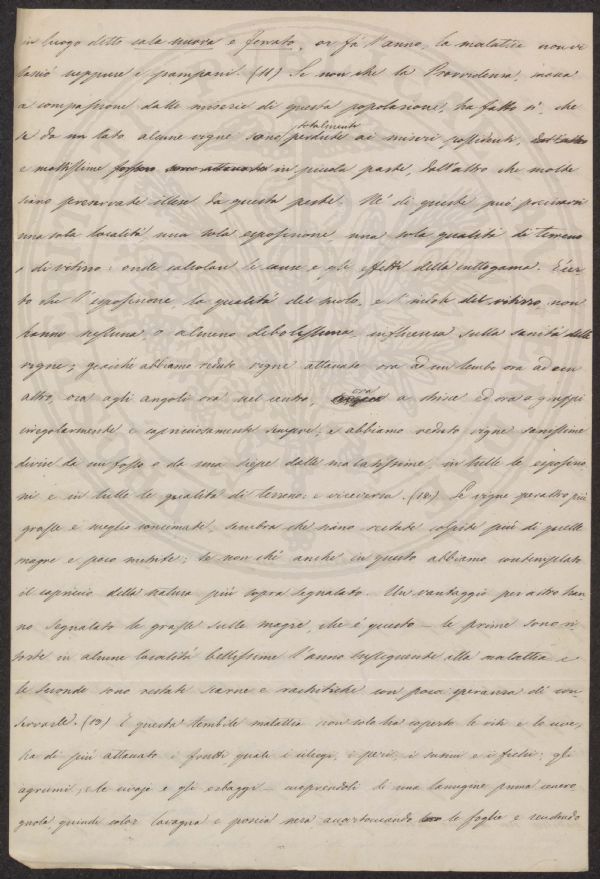 in luogo detto cala nuova e ferrato, or fà l'anno, la malattia non vi
lasciò neppure i pampani. (11) Se non che la Provvidenza, mossa
a compassione dalle miserie di questa popolazione, ha fatto sì, che
se da un lato alcune vigne sono totalmente perdute ai miseri possidenti,
e moltissime in piccola parte, dall'altro che molte
siano preservate illese da questa peste. Nè di queste può precisarsi
una sola località, una sola esposizione una sola qualità di terreno
o di vitino: onde calcolare le cause e gli effetti della crittogama. È cer-
to che l'esposizione, la qualità del suolo, e l'indole del vitizzo non
hanno nessuna, o almeno debolissima, influenza sulla sanità delle
vigne; giacchè abbiamo veduto vigne attaccate ora ad un lembo ora ad un
altro, ora agli angoli ora nel centro, ora a strisce ed ora a gruppi
irregolarmente e capricciosamente sempre; e abbiamo veduto vigne sanissime
divise da un fosso o da una siepe dalle malatissime, in tutte le esposizio
ni e in tutte le qualità di terreno: e viceversa. (18) Le vigne peraltro più
grasse e meglio concimate, sembra che siano restate colpite più di quelle
magre e poco nutrite; se non chè anche in questo abbiamo contemplato
il capriccio della natura più sopra segnalato. Un vantaggio per altro han-
no segnalato le grasse sulle magre, che è questo — le prime sono ri
sorte in alcune località bellissime l'anno susseguente alla malattia e
le seconde sono restate scarne e rachitiche con poca speranza di con
servarle. (19) E questa terribile malattia non solo ha coperto le viti e le uve,
ha di più attaccato i frutti quali i ciliegi, i peri, i susini e i fichi; gli
agrumi; le civaje e gli erbaggi — coprendoli di una lanugine prima cenero
gnola, quindi color lavagna e poscia nera accartocciando le foglie e rendendo